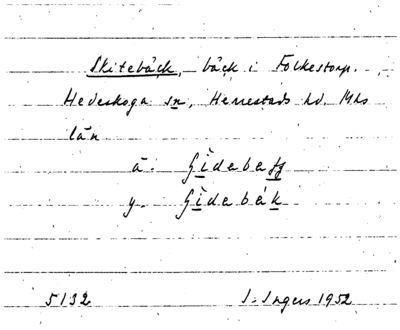 Skitebäck, bäck i Folkestorp.
Hedeskoga sn, Herrestads hd. Mhs
län
ä. Gìdebagg
y. Gìdebák
5132 I. Ingers 1952